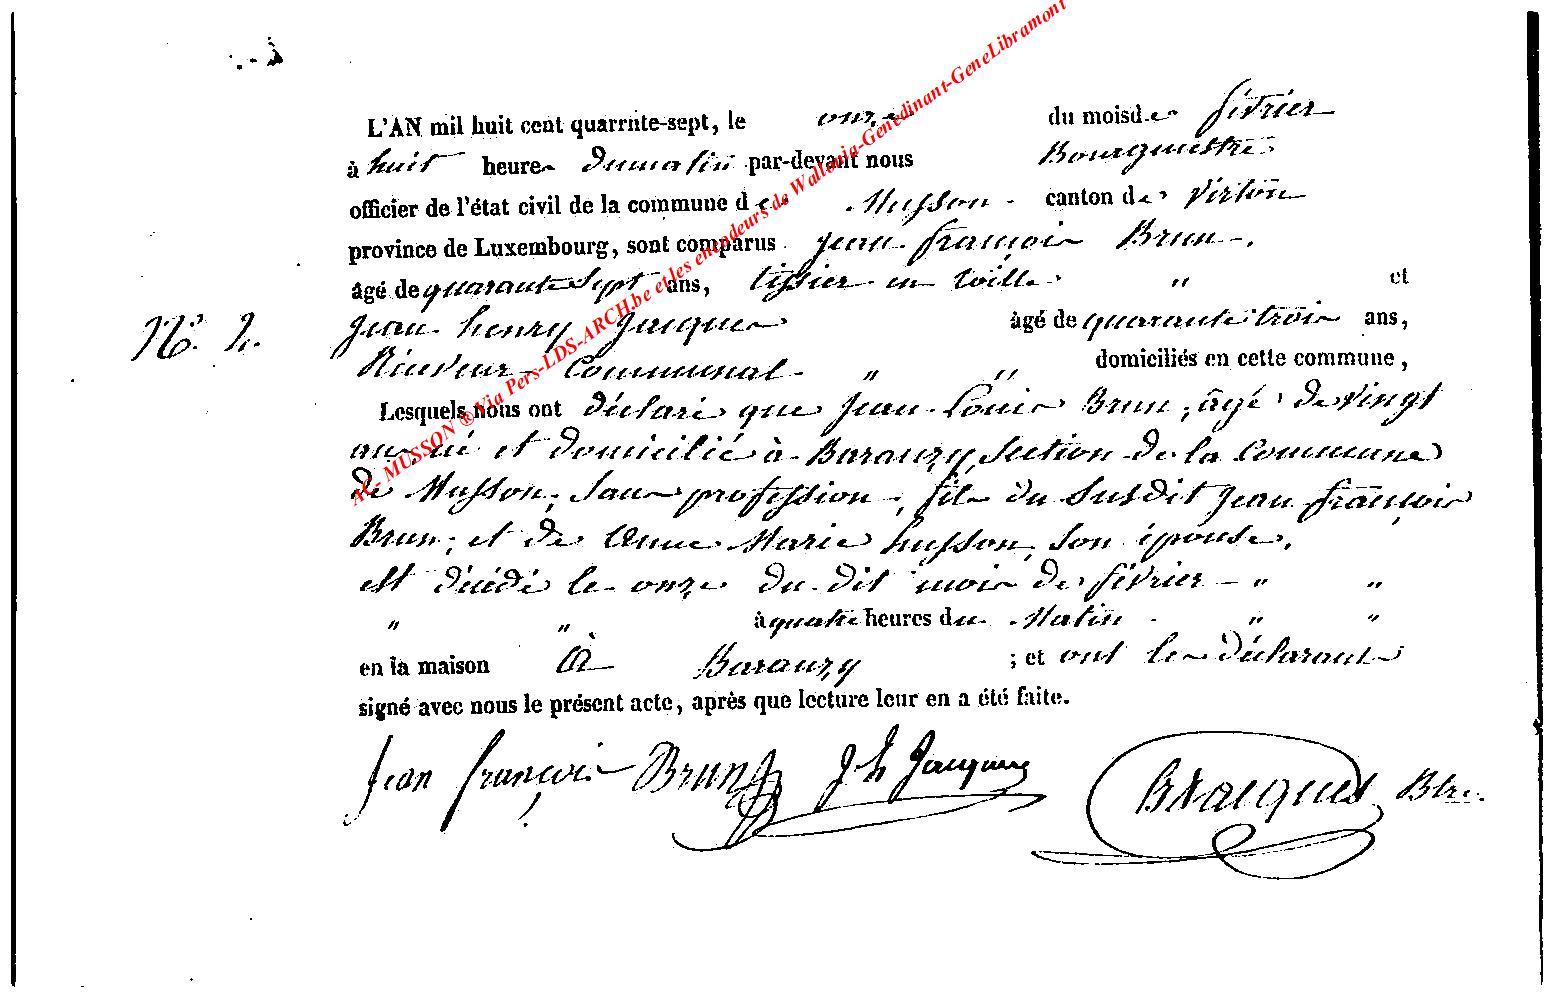 L'AN mil huit cent quarrnte-sept, le onze du mois de février
à huit heures du matin par-devant nous Bourgmestre
officier de l'état civil de la commune de Musson canton de Virton
province de Luxembourg, sont comparus Jean françois Brun
âgé de quarante Sept ans, tissier en toille " et
Jean henry Jacques âgé de quarante trois ans,
N.° 2.
Réceveur Communal " " domiciliés en cette commune,
Lesquels nous ont déclaré que Jean Louis Brun, âgé de vingt
ans, né et domicilié à Baranzy, Section de la Commune
de Musson, Sans profession, fils du Susdit Jean françois
Brun, et de Anne Marie husson, Son épouse,
est décédé le onze du dit mois de février " "
" " à quatre heures du Matin " "
en la maison à Baranzy ; et ont les déclarants
signé avec nous le présent acte, après que lecture leur en a été faite.
Jean françois Brun J h Jacques Bre.
AC- MUSSON ® Via Pers-LDS-ARCH.be et les encodeurs de Wallonia-Genedinant-GeneLibramont